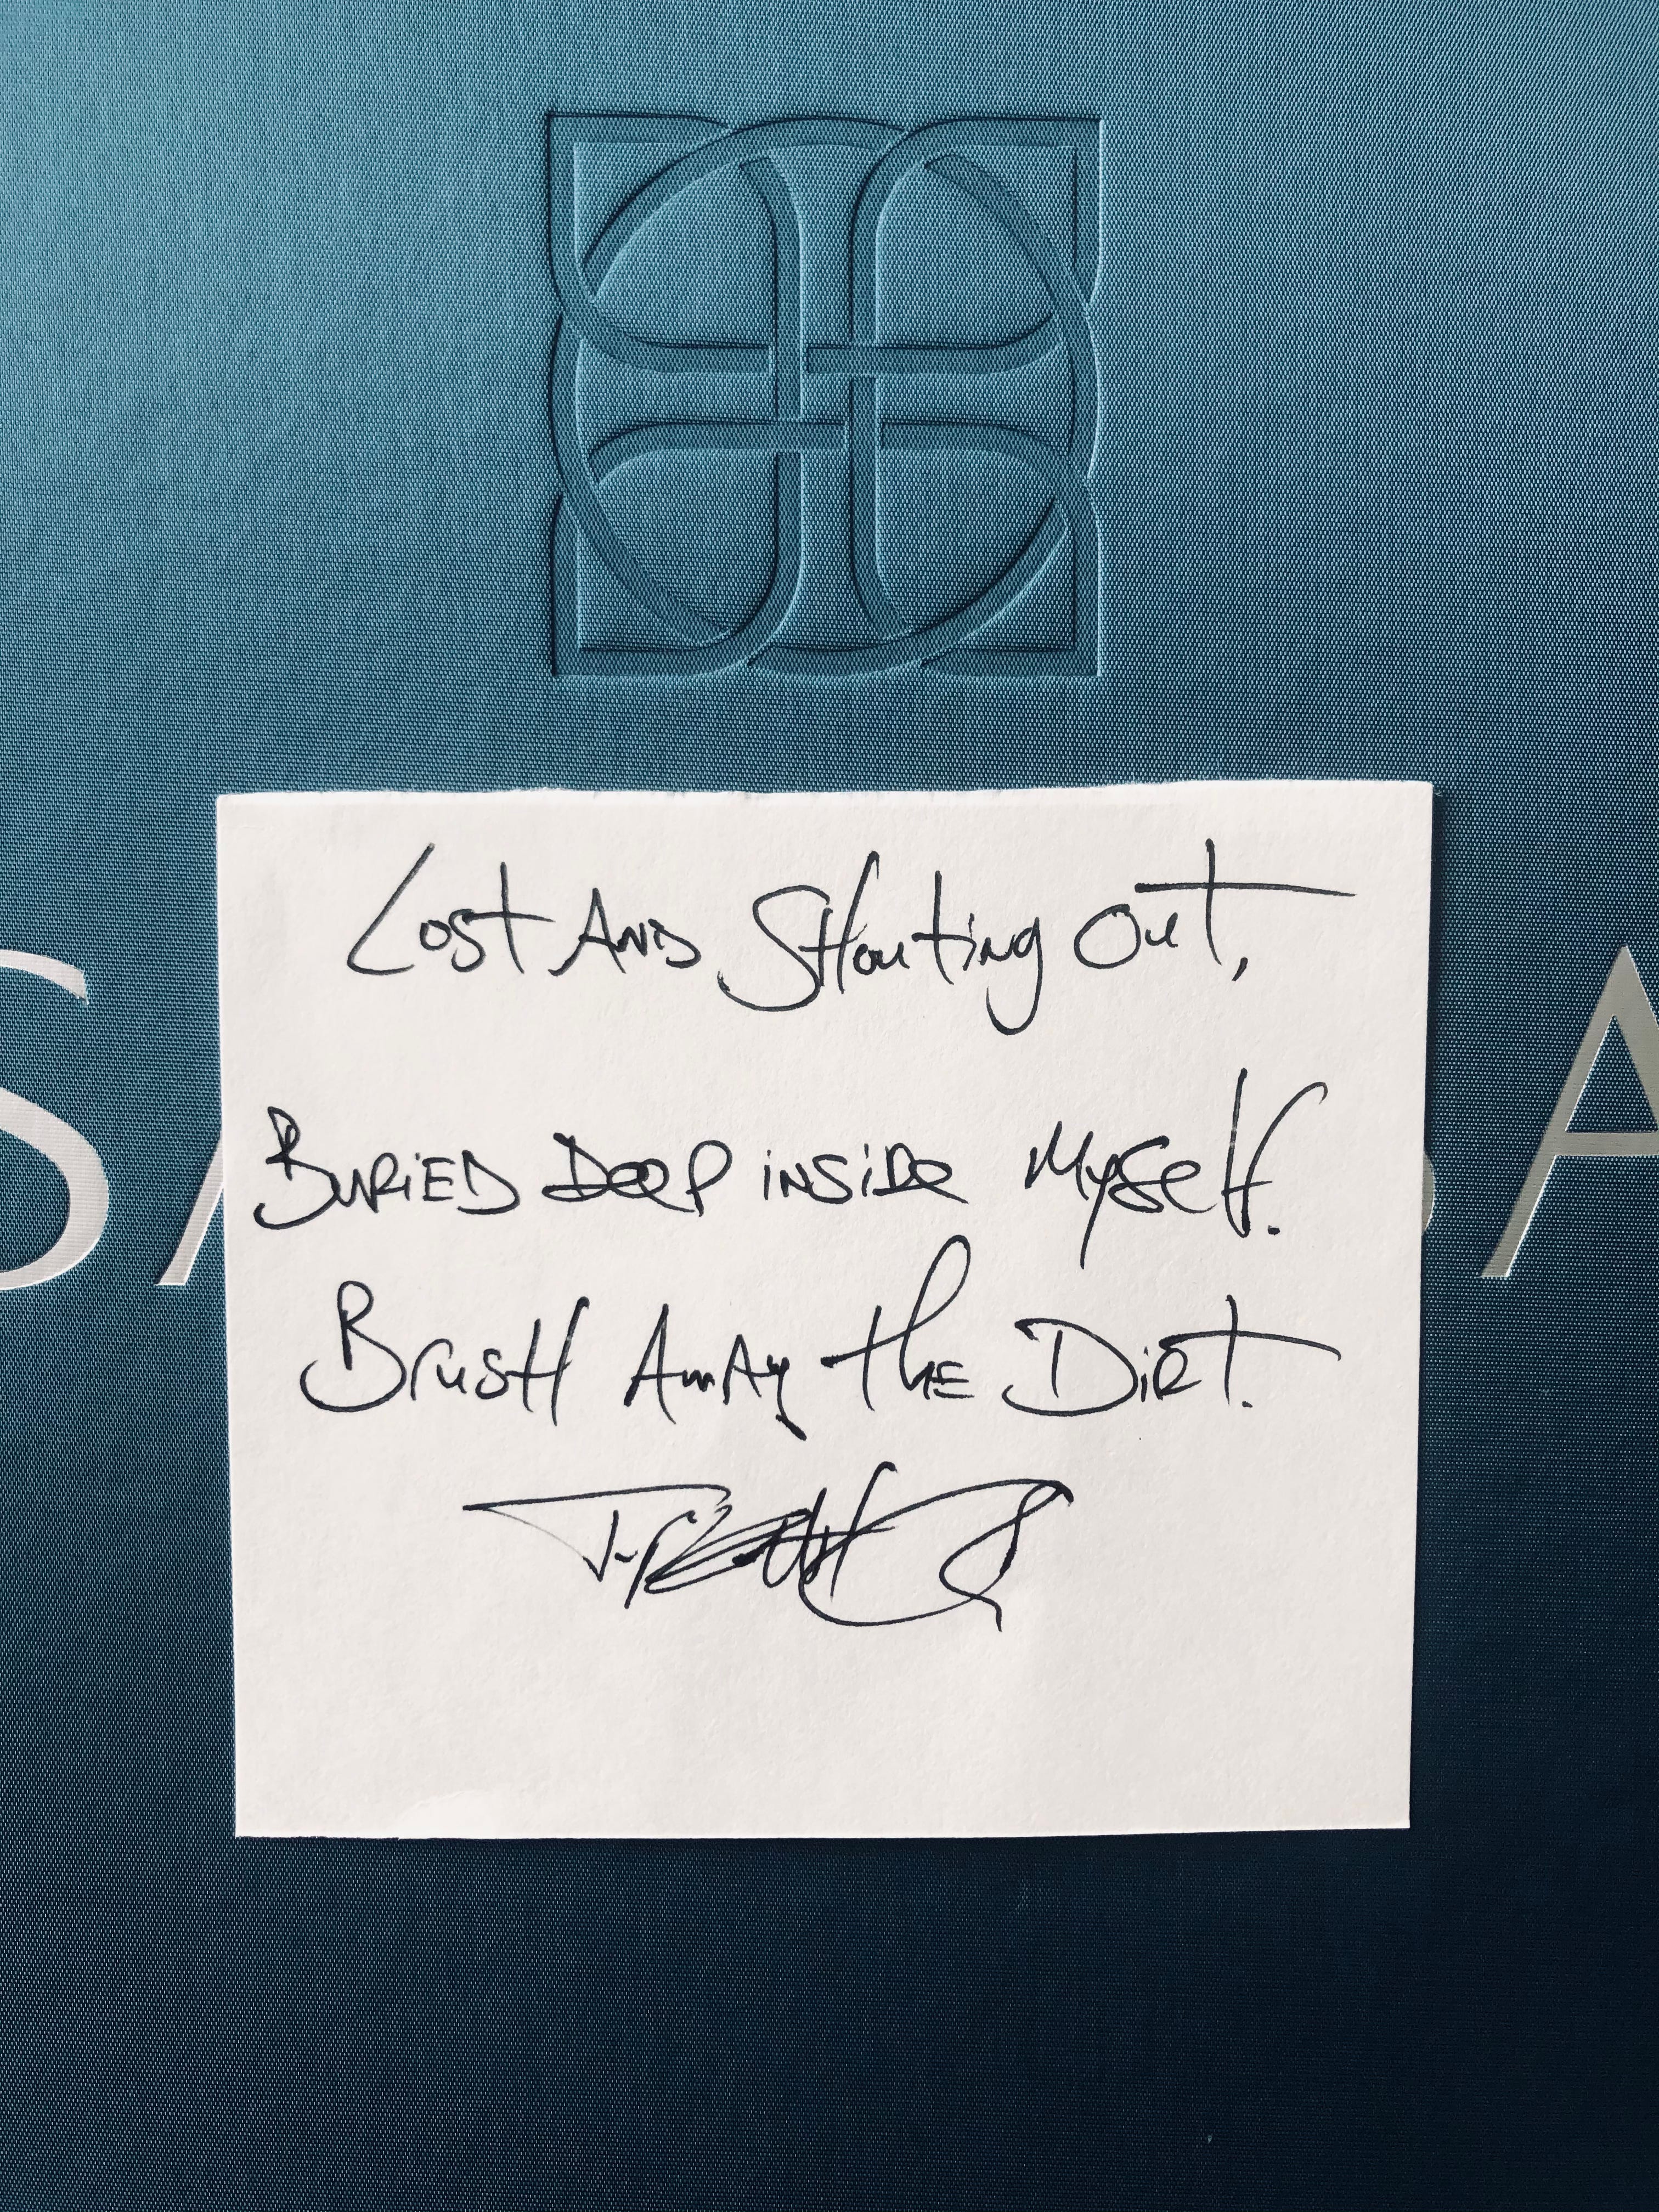 Lost And Shouting Out,
Buried Deep inside Myself.
Brush Away the Dirt.